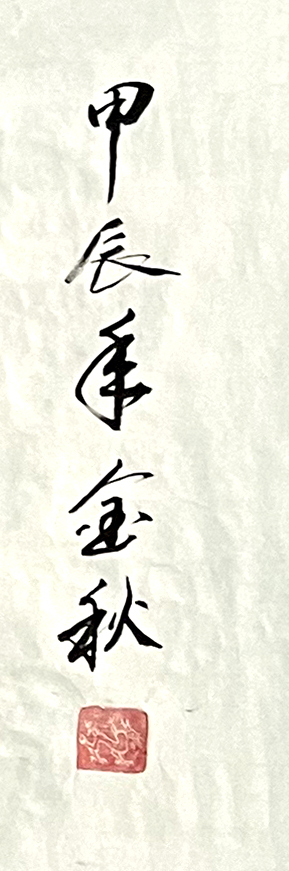 甲辰年金秋